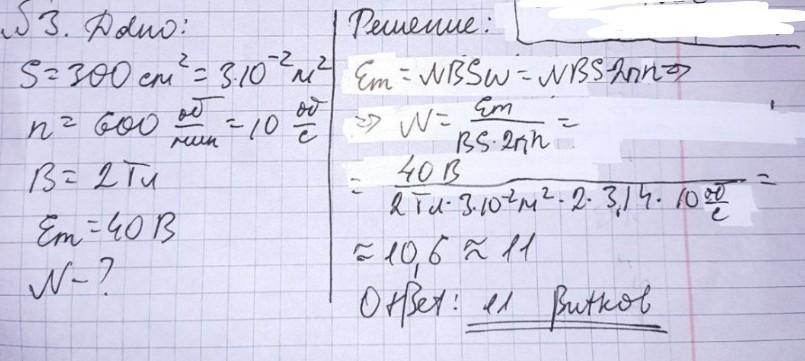 № 3. Дано:
S = 300 см² = 3·10⁻² м²
n = 600 об/мин = 10 об/с
B = 2 Тл
Em = 40 В
N - ?
Решение:
Em = NBSω = NBS·2πn ⇒
⇒ N = Em / BS·2πn =
= 40 В / 2 Тл · 3·10⁻² м² · 2 · 3,14 · 10 об/с =
≈ 10,6 ≈ 11
Ответ: 11 Витков